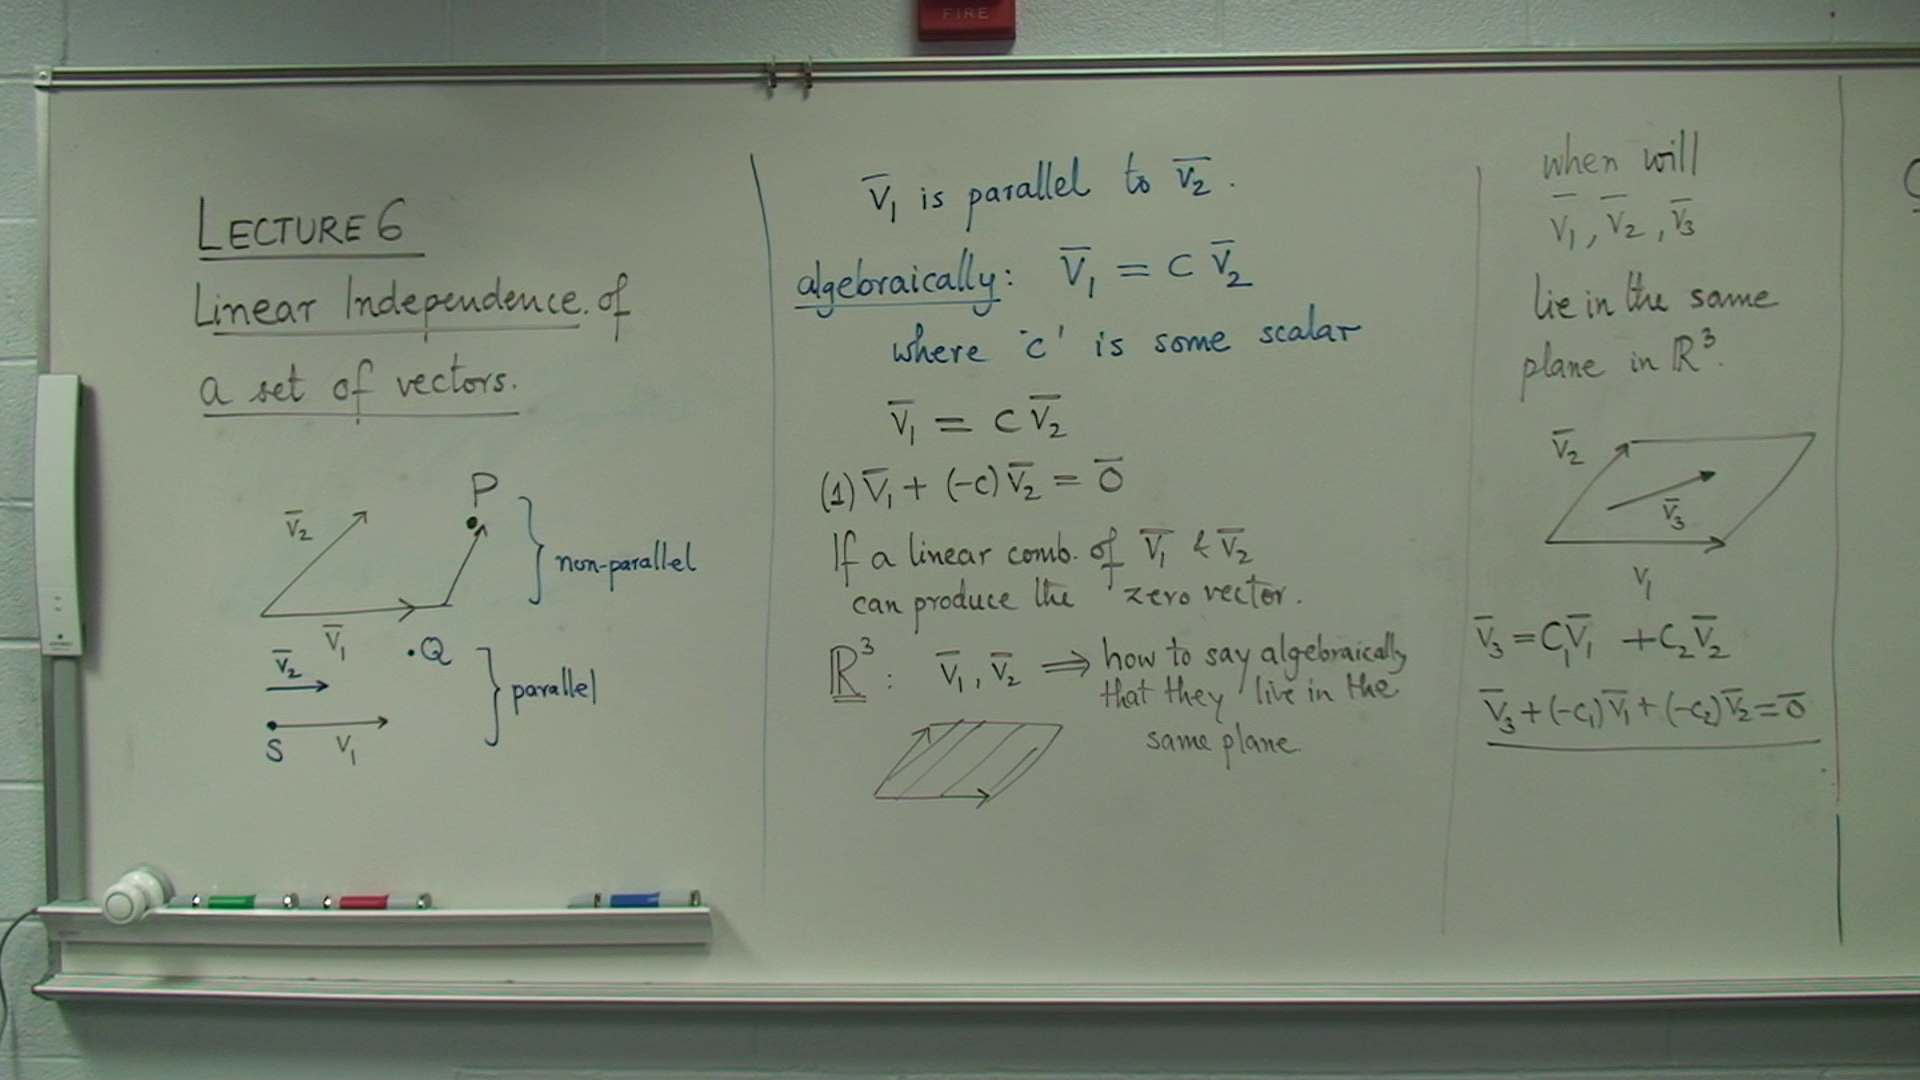 FIRE
LECTURE 6
Linear Independence of
a set of vectors.
P
v̅₂
non-parallel
v̅₁
.Q
v̅₂
parallel
S
v₁
v̅₁ is parallel to v̅₂.
algebraically: v̅₁ = c v̅₂
where 'c' is some scalar
v̅₁ = c v̅₂
(1) v̅₁ + (-c) v̅₂ = 0̅
If a linear comb. of v̅₁ & v̅₂
can produce the zero vector.
ℝ³: v̅₁, v̅₂ ⟹ how to say algebraically
that they live in the
same plane
when will
v̅₁, v̅₂, v̅₃
lie in the same
plane in ℝ³.
v̅₂
v̅₃
v₁
v̅₃ = c₁v̅₁ + c₂v̅₂
v̅₃ + (-c₁)v̅₁ + (-c₂)v̅₂ = 0̅